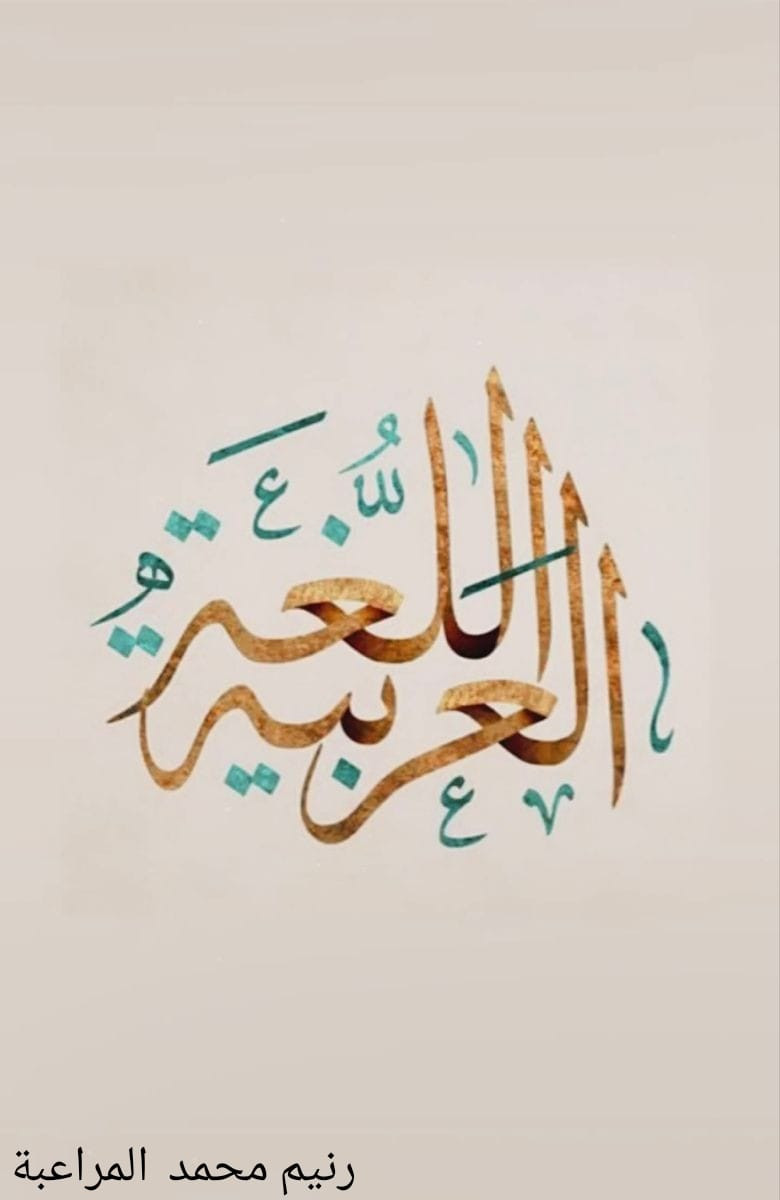 اللغة
العربية
رنيم محمد المراعبة